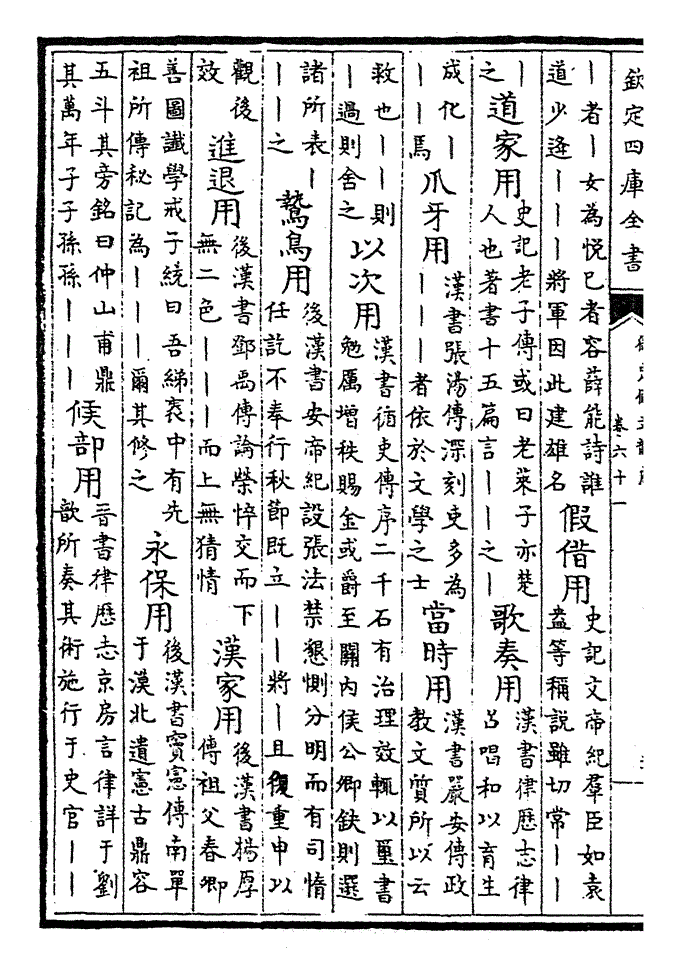 欽定四庫全書
卷六十一
｜者｜女為悅已者容薛能詩誰
道少逢｜｜｜將軍因此建雄名
假借用
史記文帝紀羣臣如袁
盎等稱說雖切常｜｜
｜
之
道家用
史記老子傳或曰老萊子亦楚
人也著書十五篇言｜｜之｜
歌奏用
漢書律歷志律
呂唱和以育生
成化｜
｜｜焉
爪牙用
漢書張湯傳深刻吏多為
｜｜｜者依於文學之士
當時用
漢書嚴安傳政
教文質所以云
救也｜｜則
｜過則舍之
以次用
漢書循吏傳序二千石有治理效輒以璽書
勉厲增秩賜金或爵至關內侯公卿缺則選
諸所表｜
｜｜之
鷙鳥用
後漢書安帝紀設張法禁懇惻分明而有司惰
任訖不奉行秋節既立｜｜將｜且復重申以
觀後
效
進退用
後漢書鄧禹傳論榮悴交而下
無二色｜｜｜而上無猜情
漢家用
後漢書楊厚
傳祖父春卿
善圖讖學戒子統曰吾綈袠中有先
祖所傳秘記為｜｜｜爾其修之
永保用
後漢書竇憲傳南單
于漢北遺憲古鼎容
五斗其旁銘曰仲山甫鼎
其萬年子子孫孫｜｜｜
候部用
晉書律歷志京房言律詳于劉
歆所奏其術施行于史官｜｜